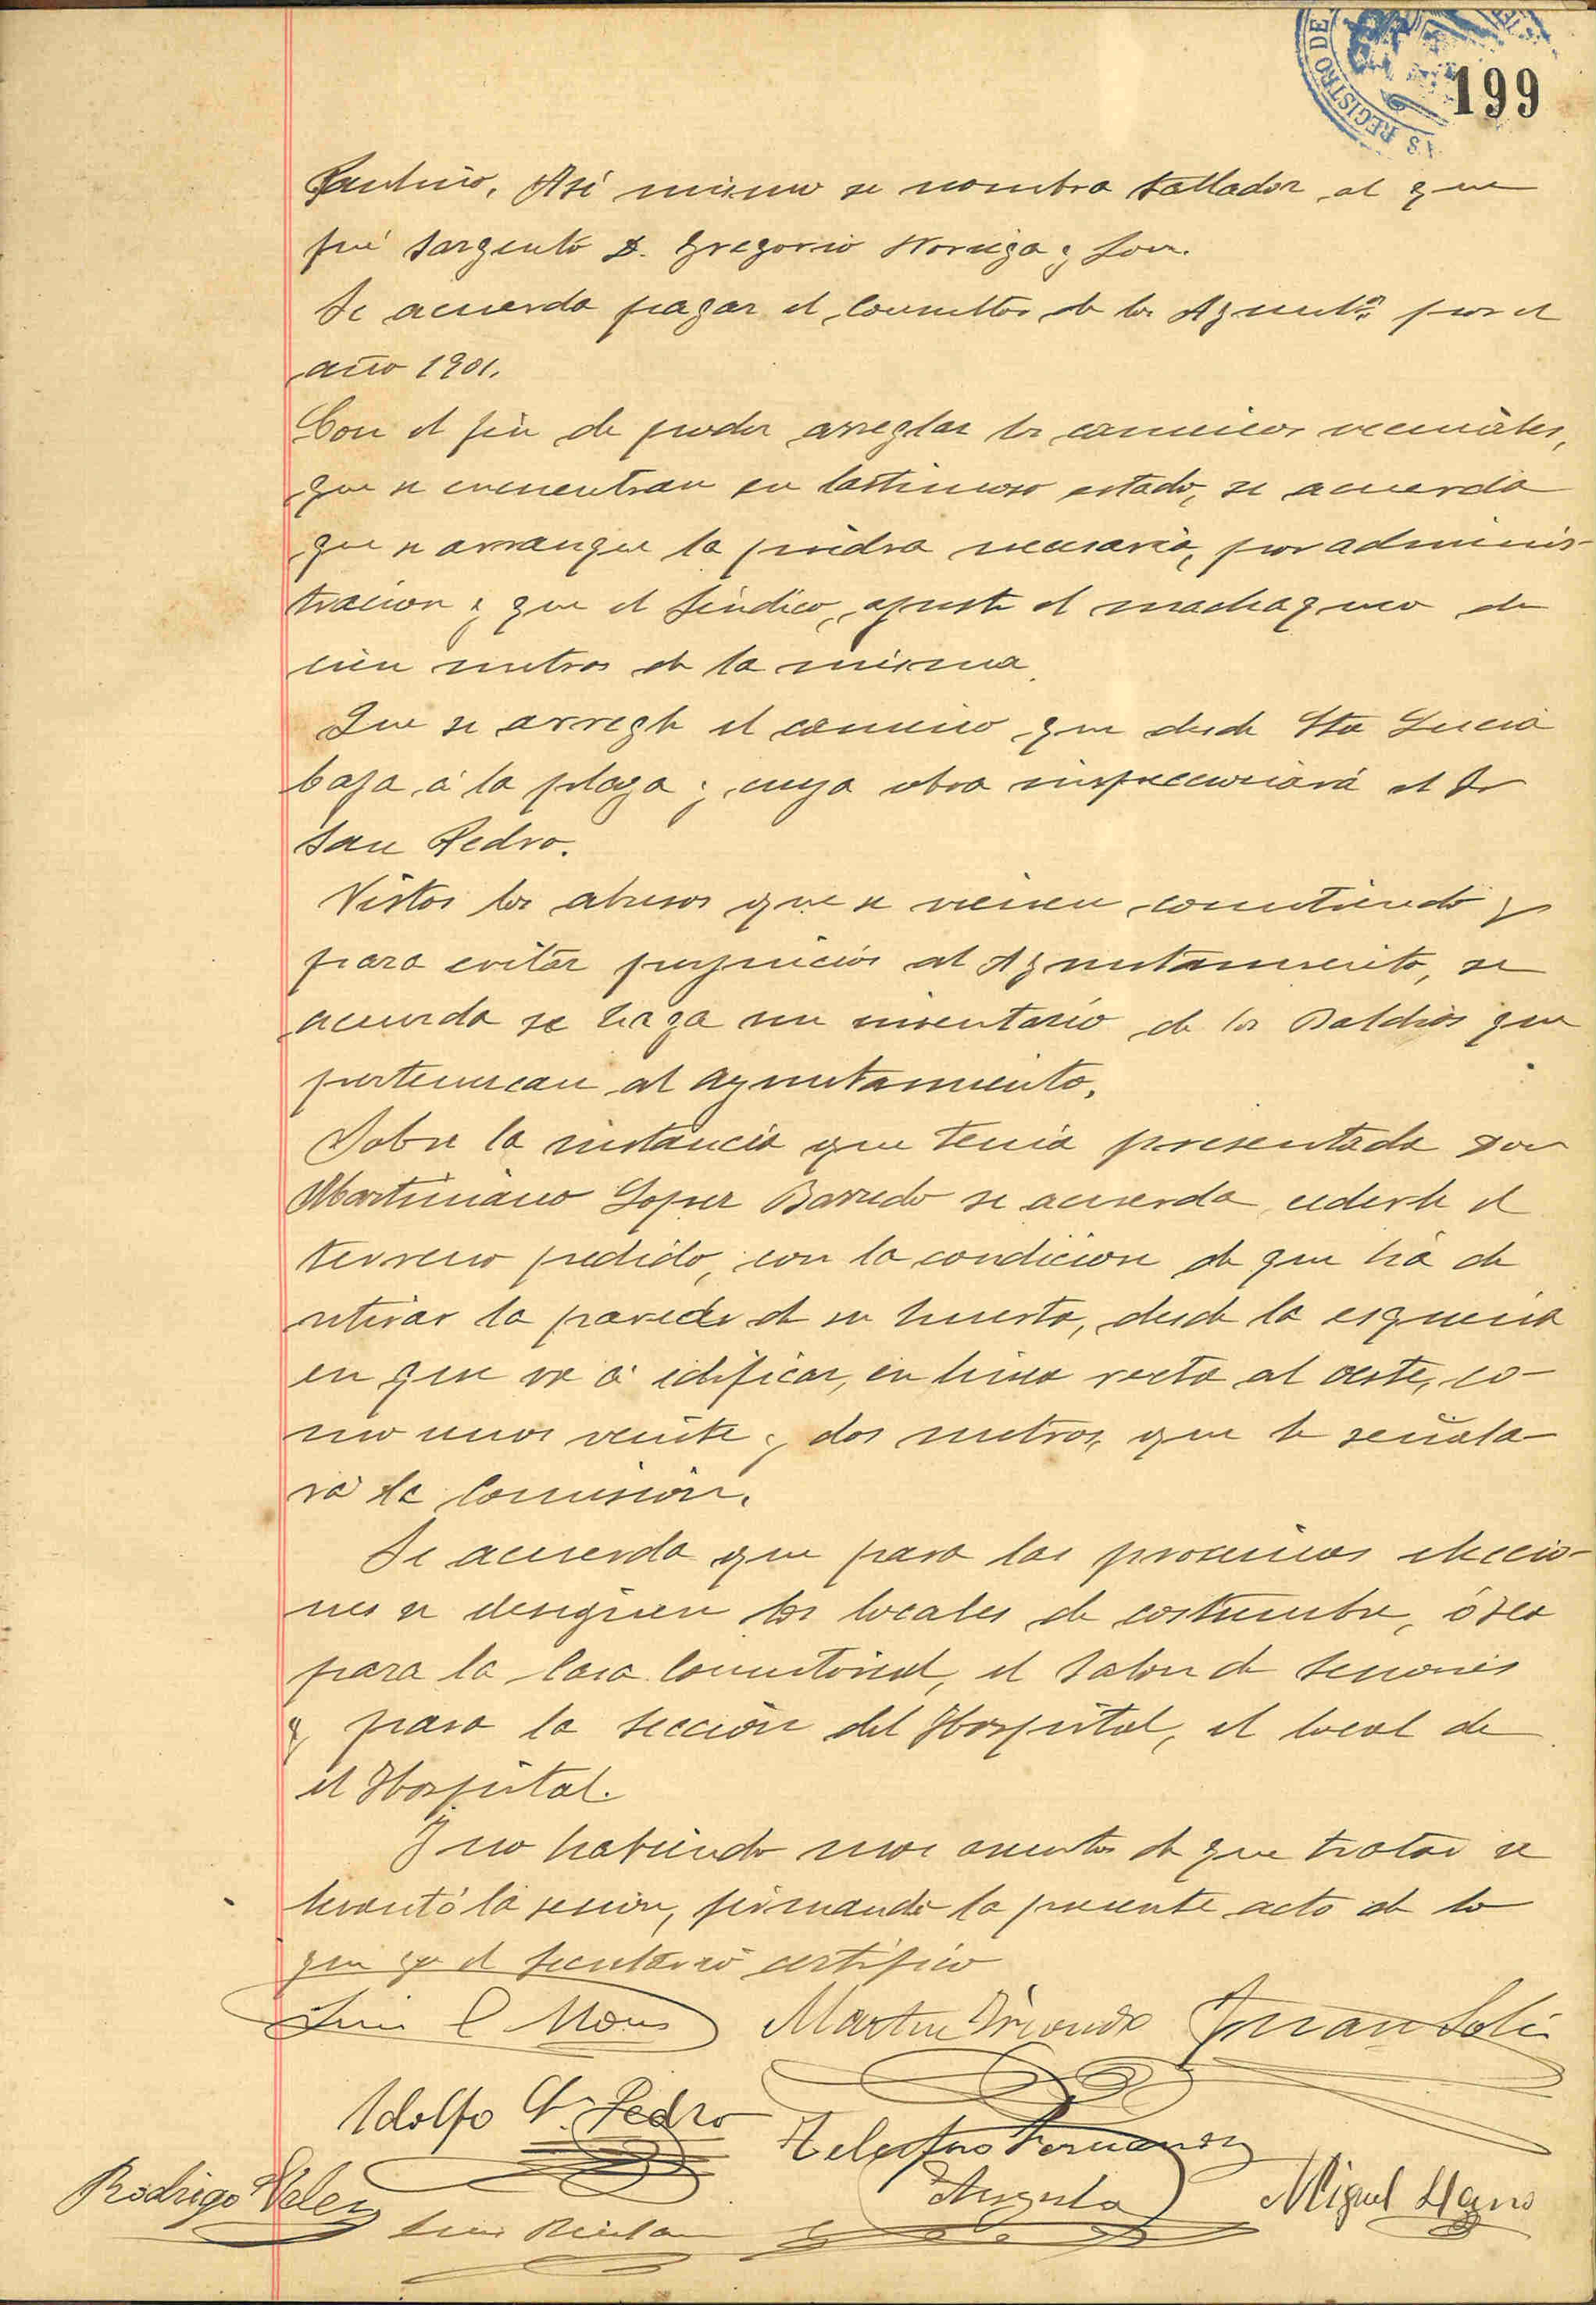 REGISTRO DE
199
Santiño. Así mismo se nombra tallador al que
fué sargento D. Gregorio Noriega y Son.
Se acuerda pagar el Consultor de los Ayuntos por el
año 1901.
Con el fin de poder arreglar los caminos vecinales,
que se encuentran en lastimoso estado, se acuerda
que se arranque la piedra necesaria, por adminis-
tracion y que el Síndico, ajuste el machaqueo de
cien metros de la misma.
Que se arregle el camino que desde Sta Lucia
baja á la plaza y cuya obra inspeccionará el Sr
San Pedro.
Vistos los abusos que se vienen cometiendo y
para evitar perjuicios al Ayuntamiento, se
acuerda se haga un inventario de los Baldios que
pertenezcan al Ayuntamiento.
Sobre la instancia que tenia presentada Don
Martiniano Lopez Barredo se acuerda cederle el
terreno pedido, con la condicion de que há de
retirar la pared de su huerta, desde la esquina
en que va á edificar, en linea recta al oeste, co-
mo unos veinte y dos metros, que le señala-
rá la Comision.
Se acuerda que para las proximas eleccio-
nes se designen los locales de costumbre, ó sea
para la Casa Consistorial, el Salon de Sesiones
y para la seccion del Hospital, el local de
el Hospital.
Y no habiendo mas asuntos de que tratar se
levantó la sesion, firmando la presente acta de lo
que yo el Secretario certifico
Luis Martin Juan Solis
Adolfo Sn Pedro Telesforo Fernandez
Rodrigo Velez Angula Miguel Llano
Luis